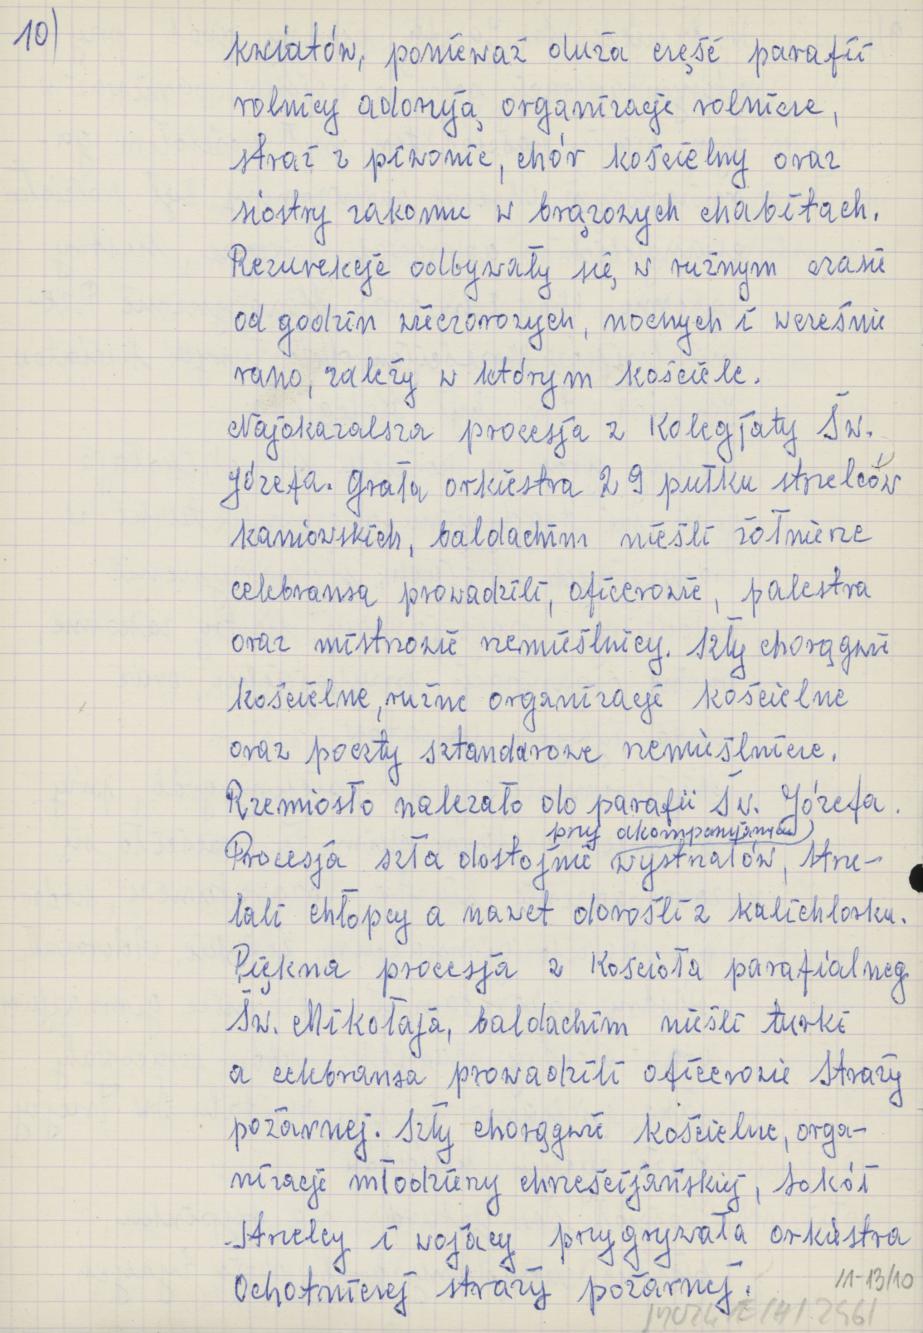 10)
kwiatów, ponieważ duża część parafii
rolnicy adorują organizacje rolnicze,
straż z piwonic, chór kościelny oraz
siostry zakonne w brązowych chabitach.
Rezurekcje odbywały się w różnym czasie
od godzin wieczorowych, nocnych i wcześnie
rano, zależy w którym kościele.
Najokazalsza procesja z Kolegjaty Św.
Józefa. Grała orkiestra 29 pułku strzelców
kaniowskich, baldachim nieśli żołnierze
celebransa prowadzili, oficerowie, palestra
oraz mistrzowie rzemieślnicy. Szły chorągwie
kościelne, różne organizacje kościelne
oraz poczty sztandarowe rzemieślnicze.
Rzemiosło należało do parafii Św. Józefa.
przy akompanjamencie
Procesja szła dostojnie wystrzałów, strze-
lali chłopcy a nawet dorośli z kalichlorku.
Piękna procesja z Kościoła parafialneg
Św. Mikołaja, baldachim nieśli turki
a celebransa prowadzili oficerowie Straży
pożarnej. Szły chorągwie kościelne, orga-
nizacje młodzieży chrześcijańskiej, Sokół
Strzelcy i wojacy przygrywała orkiestra
Ochotniczej straży pożarnej.
11-13/10